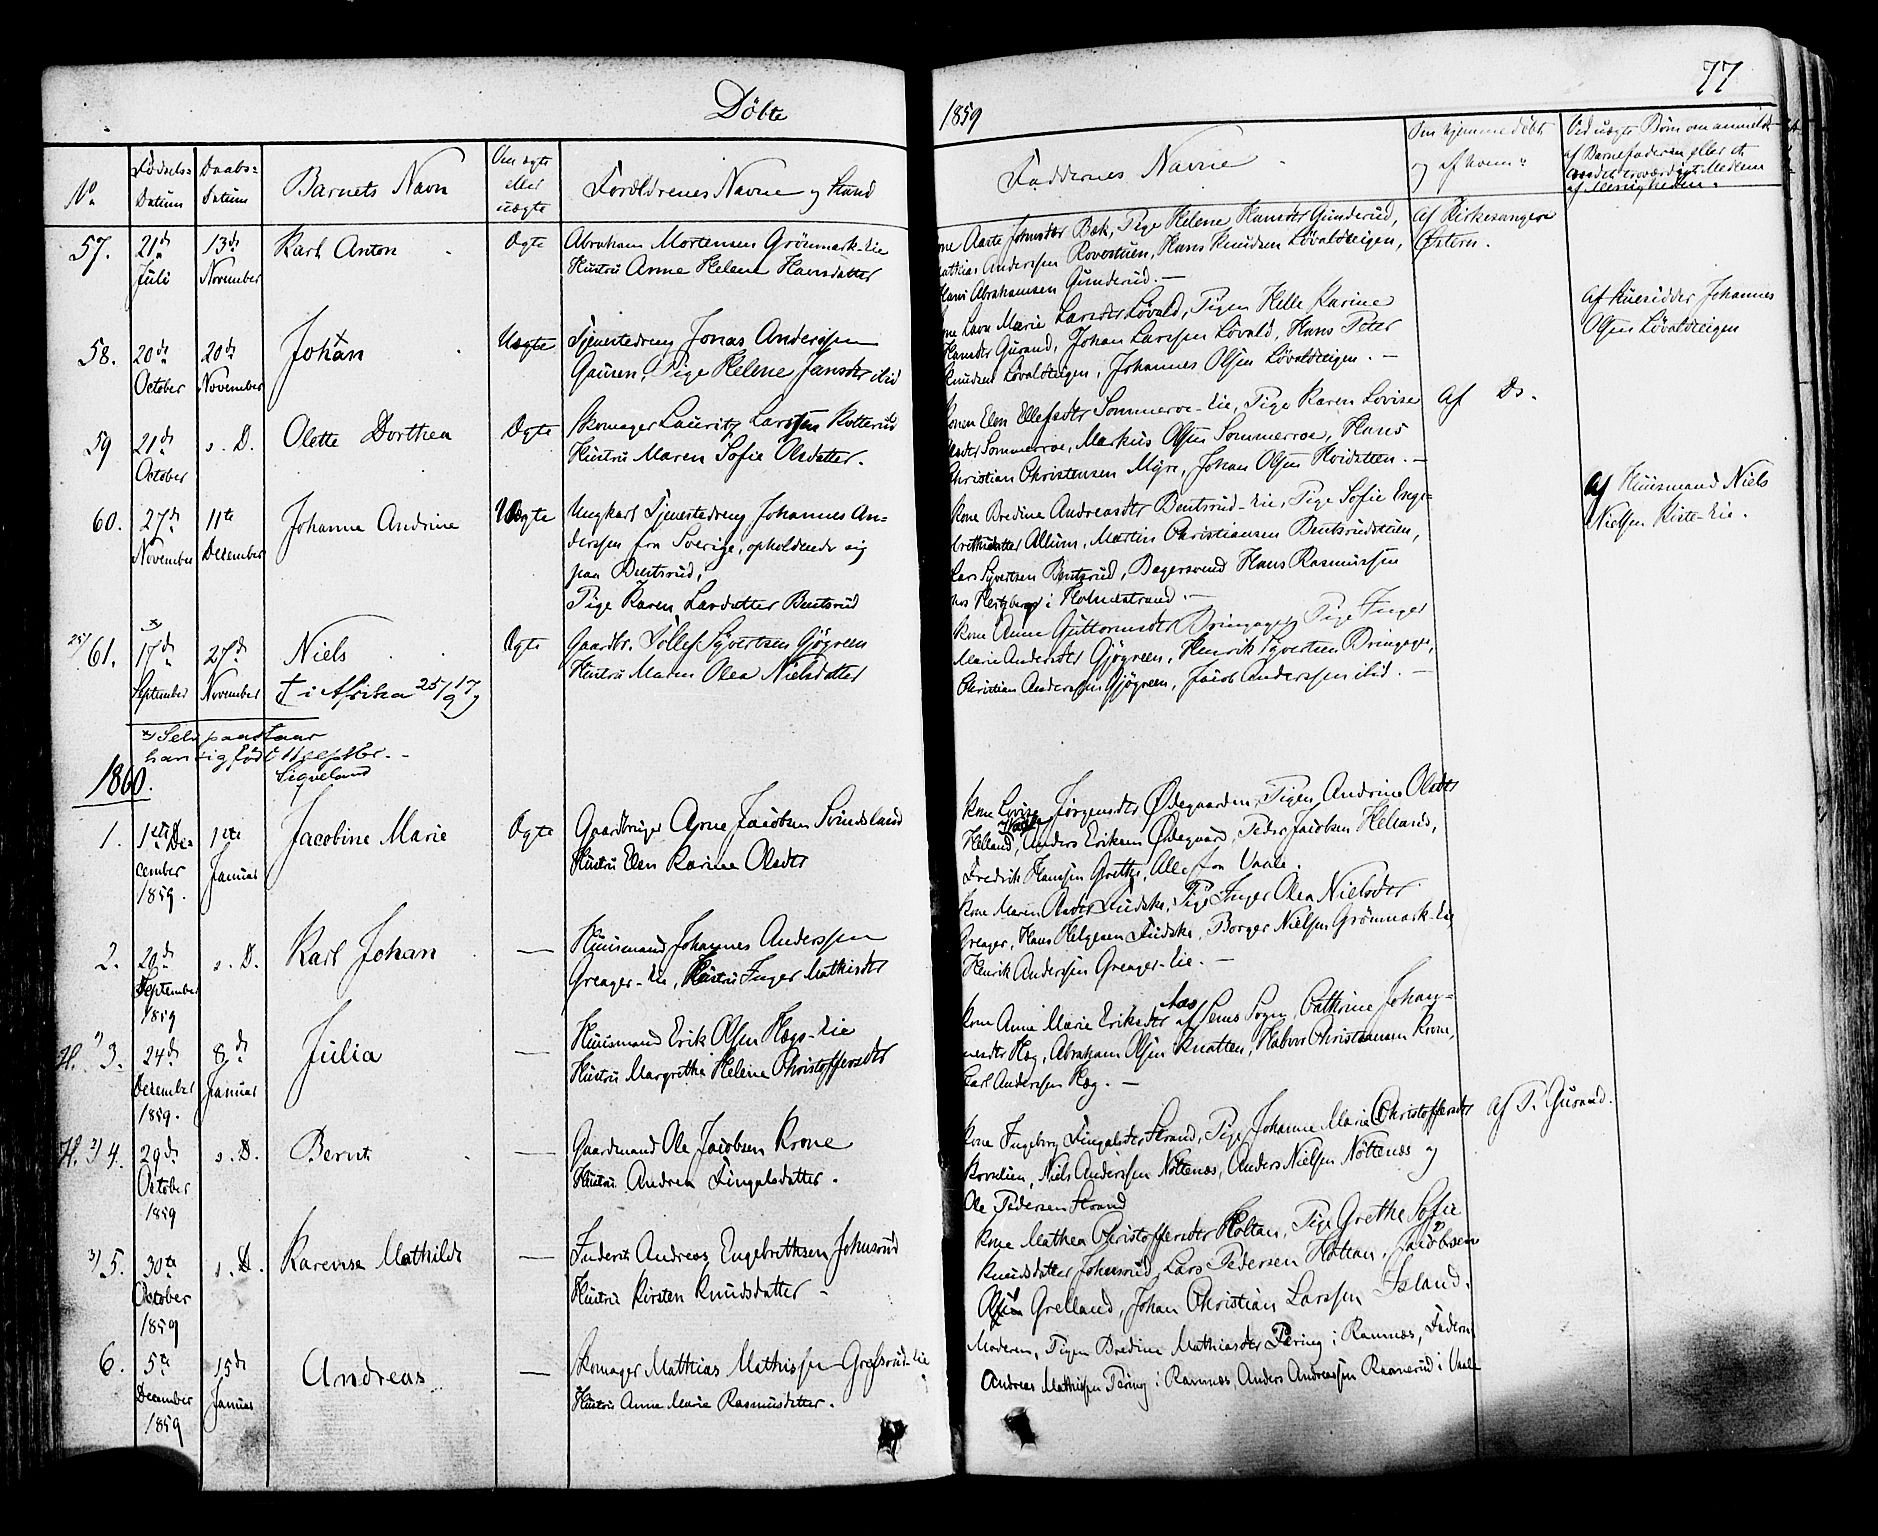 Döbte
1859
77
No
Födsels-
Datum
Daabs-
Datum
Barnets Navn
Om ægte
eller
uægte
Forældrenes Navne og Stand
Faddernes Navne
Om hjemmedöbt
og af hvem
Ved uægte Börn om anmeldt
af Barnefaderen eller et
andet troværdigt Medlem
af Menigheden.
57.
21de
Juli
13de
November
Karl Anton
Ægte
Abraham Mortensen Grönmark-Eie
Hustru Anne Helene Hansdatter
Aaste Johnsdtr Bæk, Pige Helene Hansdtr Gunderud,
Mathias Anderssen Rovestuen, Hans Knudsen Lövaldteigen,
Hans Abrahamsen Gunderud.
Af Kirkesanger
Östern.
58.
20de
October
20de
November
Johan
Uægte
Tjenestedreng Jonas Anderssen
Gausen, Pige Helene Jansdtr ibid
Marie Larsdtr Lövald, Pigen Helle Karine
Hansdtr Gurand, Johan Larssen Lövald, Hans Peter
Knudsen Lövaldteigen, Johannes Olsen Lövaldteigen.
Af Huusidder Johannes
Olsen Lövaldteigen
59
21de
October
s. D.
Olette Dorthea
Ægte
Skomager Lauritz Larssen Kotterud
Hustru Maren Sofie Olsdatter.
Konen Elen Ellefsdtr Sommeroe-Eie, Pige Karen Lovise
Sommerroe, Markus Olsen Sommerroe, Hans
Christian Christensen Myre, Johan Olsen Hvidsten.
Af Do.
60.
27de
November
11te
Dezember
Johanne Andrine
Uægte
Ungkarl Tjenestedreng Johannes An-
derssen fra Sverige, opholdende sig
paa Bentsrud,
Pige Karen Larsdatter Bentsrud
Kone Bredine Andreasdtr Bentsrud-Eie, Pige Sofie Enge-
brethsdatter Allum, Martin Christiansen Bentsrudstuen,
Lars Syvertsen Bentsrud, Bagersvend Hans Rasmussen
hos Hertzberg i Holmestrand.
Af Huusmand Niels
Nielsen Kiste-Eie.
25/61.
17de
September
27de
November
Niels
† i Afrika 25/9 17
Ægte
Gaardbr. Tollef Syvertsen Gjögreen
Hustru Maren Olea Nielsdatter
Kone Anne Guttormsdtr Bringager, Pige Inger
Marie Andersdtr Gjögreen, Henrik Syvertsen Bringager,
Christian Anderssen Gjögreen, Jacob Anderssen ibid.
x) Selv paastaar
han sig födt 11 septbr.
Siqueland
1860.
1.
1ste De-
cember
1859.
1ste
Januar
Jacobine Marie
Ægte
Gaardbruger Arne Jacobsen Svindsland
Hustru Elen Karine Olsdtr
Kone Lovise Jörgensdtr Ödegaarden, Pigen Andrine Olsdtr
Helland, Anders Eriksen Ödegaard, Peder Jacobsen Helland,
Fredrik Hanssen Grette, Alle fra Vaale.
2.
29de
September
1859
s. D.
Karl Johan
—
Huusmand Johannes Anderssen
Greager-Eie, Hustru Inger Mathisdtr
Kone Maren Olsdtr Fudske, Pige Inger Olea Nielsdtr
Greager, Hans Helgesen Fudske, Borger Nielsen Grönmark-Eie,
Henrik Anderssen Greager-Eie.
H. 1) 3.
24de
Dezember
1859.
8de
Januar
Julia
—
Huusmand Erik Olsen Hægs-Eie
Hustru Margrethe Helene Christoffersdtr
Kone Anne Marie Eriksdtr Aas af Sems Sogn, Cathrine Johan-
nesdtr Hæg, Abraham Olsen Knatten, Halvor Christiansen Krone,
Carl Anderssen Hæg.
H. 2) 4.
29de
October
1859
s. D.
Bernt
—
Gaardmand Ole Jacobsen Krone
Hustru Andrea Fingalsdatter.
Kone Ingeborg Fingalsdtr Strand, Pige Johanne Marie Christoffersdtr
Korselien, Niels Anderssen Nöttenæs, Anders Nielsen Nöttenæs og
Ole Pedersen Strand
Af P. Gurand.
3) 5.
30te
October
1859
s. D.
Karenise Mathilde
—
Inderst Andreas Engebrethsen Johnsrud
Hustru Kirsten Knudsdatter
Kone Mathea Christoffersdtr Holtan, Pige Grethe Sofie
Knudsdatter Johnsrud, Lars Pedersen Holtan, Jacobsen
Grelland, Johan Christian Larssen Island.
6.
5te
December
1859
15de
Januar
Andreas
—
Skomager Mathias Mathissen Grefsrud-Eie
Hustru Anne Marie Rasmusdatter.
Moderen, Pigen Bredine Mathiasdtr Pering i Ramnæs, Faderen
Andreas Mathissen Pering i Ramnæs, Anders Andreassen Raanerud i Vaale